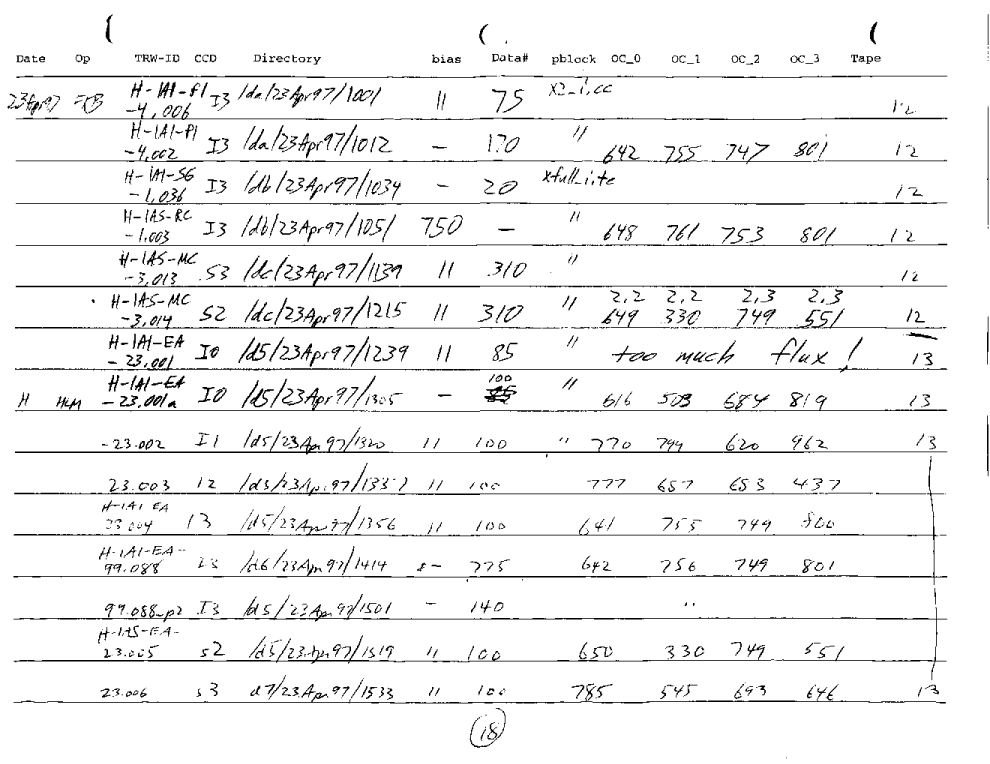 Date Op TRW-ID CCD Directory bias Data# pblock OC_0 OC_1 OC_2 OC_3 Tape
23Apr97 H-IAI-PI-4,006 I3 /da/23Apr97/1001 11 75 X2_i.cc 12
H-IAI-PI-4,002 I3 /da/23Apr97/1012 – 170 " 642 755 747 801 12
H-IAI-SG-1,036 I3 /db/23Apr97/1034 – 20 xfull_i.te 12
H-IAS-RC-1.003 I3 /db/23Apr97/1051 750 – " 648 761 753 801 12
H-IAS-MC-3,013 S3 /dc/23Apr97/1139 11 310 " 12
H-IAS-MC-3,014 S2 /dc/23Apr97/1215 11 310 " 2,2 2,2 2,3 2,3 649 330 749 551 12
H-IAI-EA-23,001 I0 /d5/23Apr97/1239 11 85 " too much flux! 13
H HLM H-IAI-EA-23,001a I0 /d5/23Apr97/1305 – 100 " 616 503 684 819 13
-23.002 I1 /d5/23Apr97/1320 11 100 " 770 799 620 962 13
23.003 I2 /d5/23Apr97/1337 11 100 777 657 653 437
H-IAI-EA 23.004 I3 /d5/23Apr97/1356 11 100 641 755 749 800
H-IAI-EA-99.088 /d6/23Apr97/1414 775 642 756 749 801
99.088-p2 I3 /d5/23Apr97/1501 – 140 "
H-IAS-EA-23.005 S2 /d5/23Apr97/1519 11 100 650 330 749 551
23.006 S3 d7/23Apr97/1533 11 100 785 545 693 646 13
18